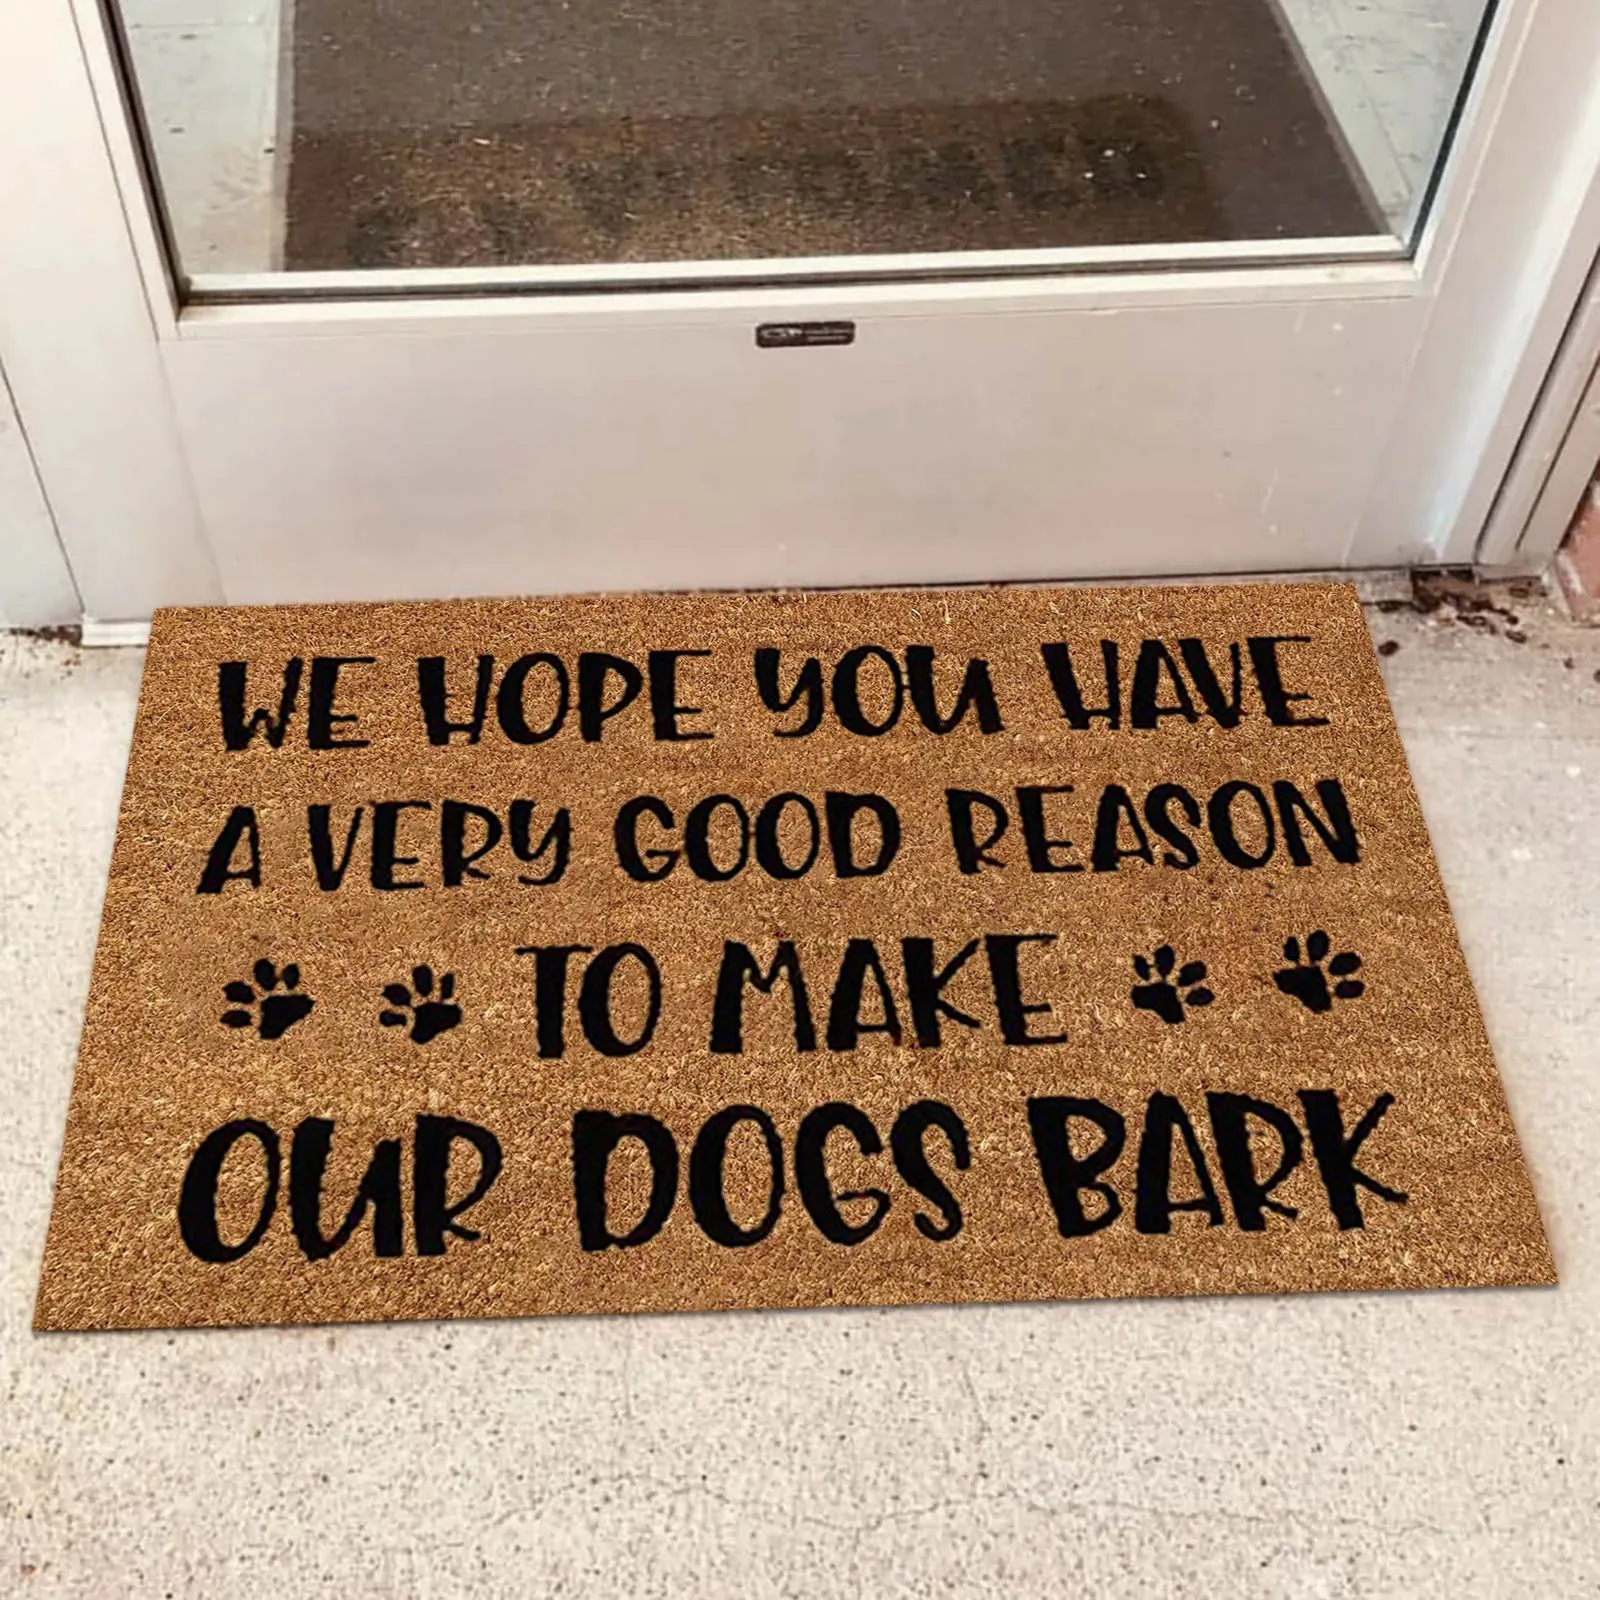 WE HOPE YOU HAVE
A VERY GOOD REASON
TO MAKE
OUR DOGS BARK